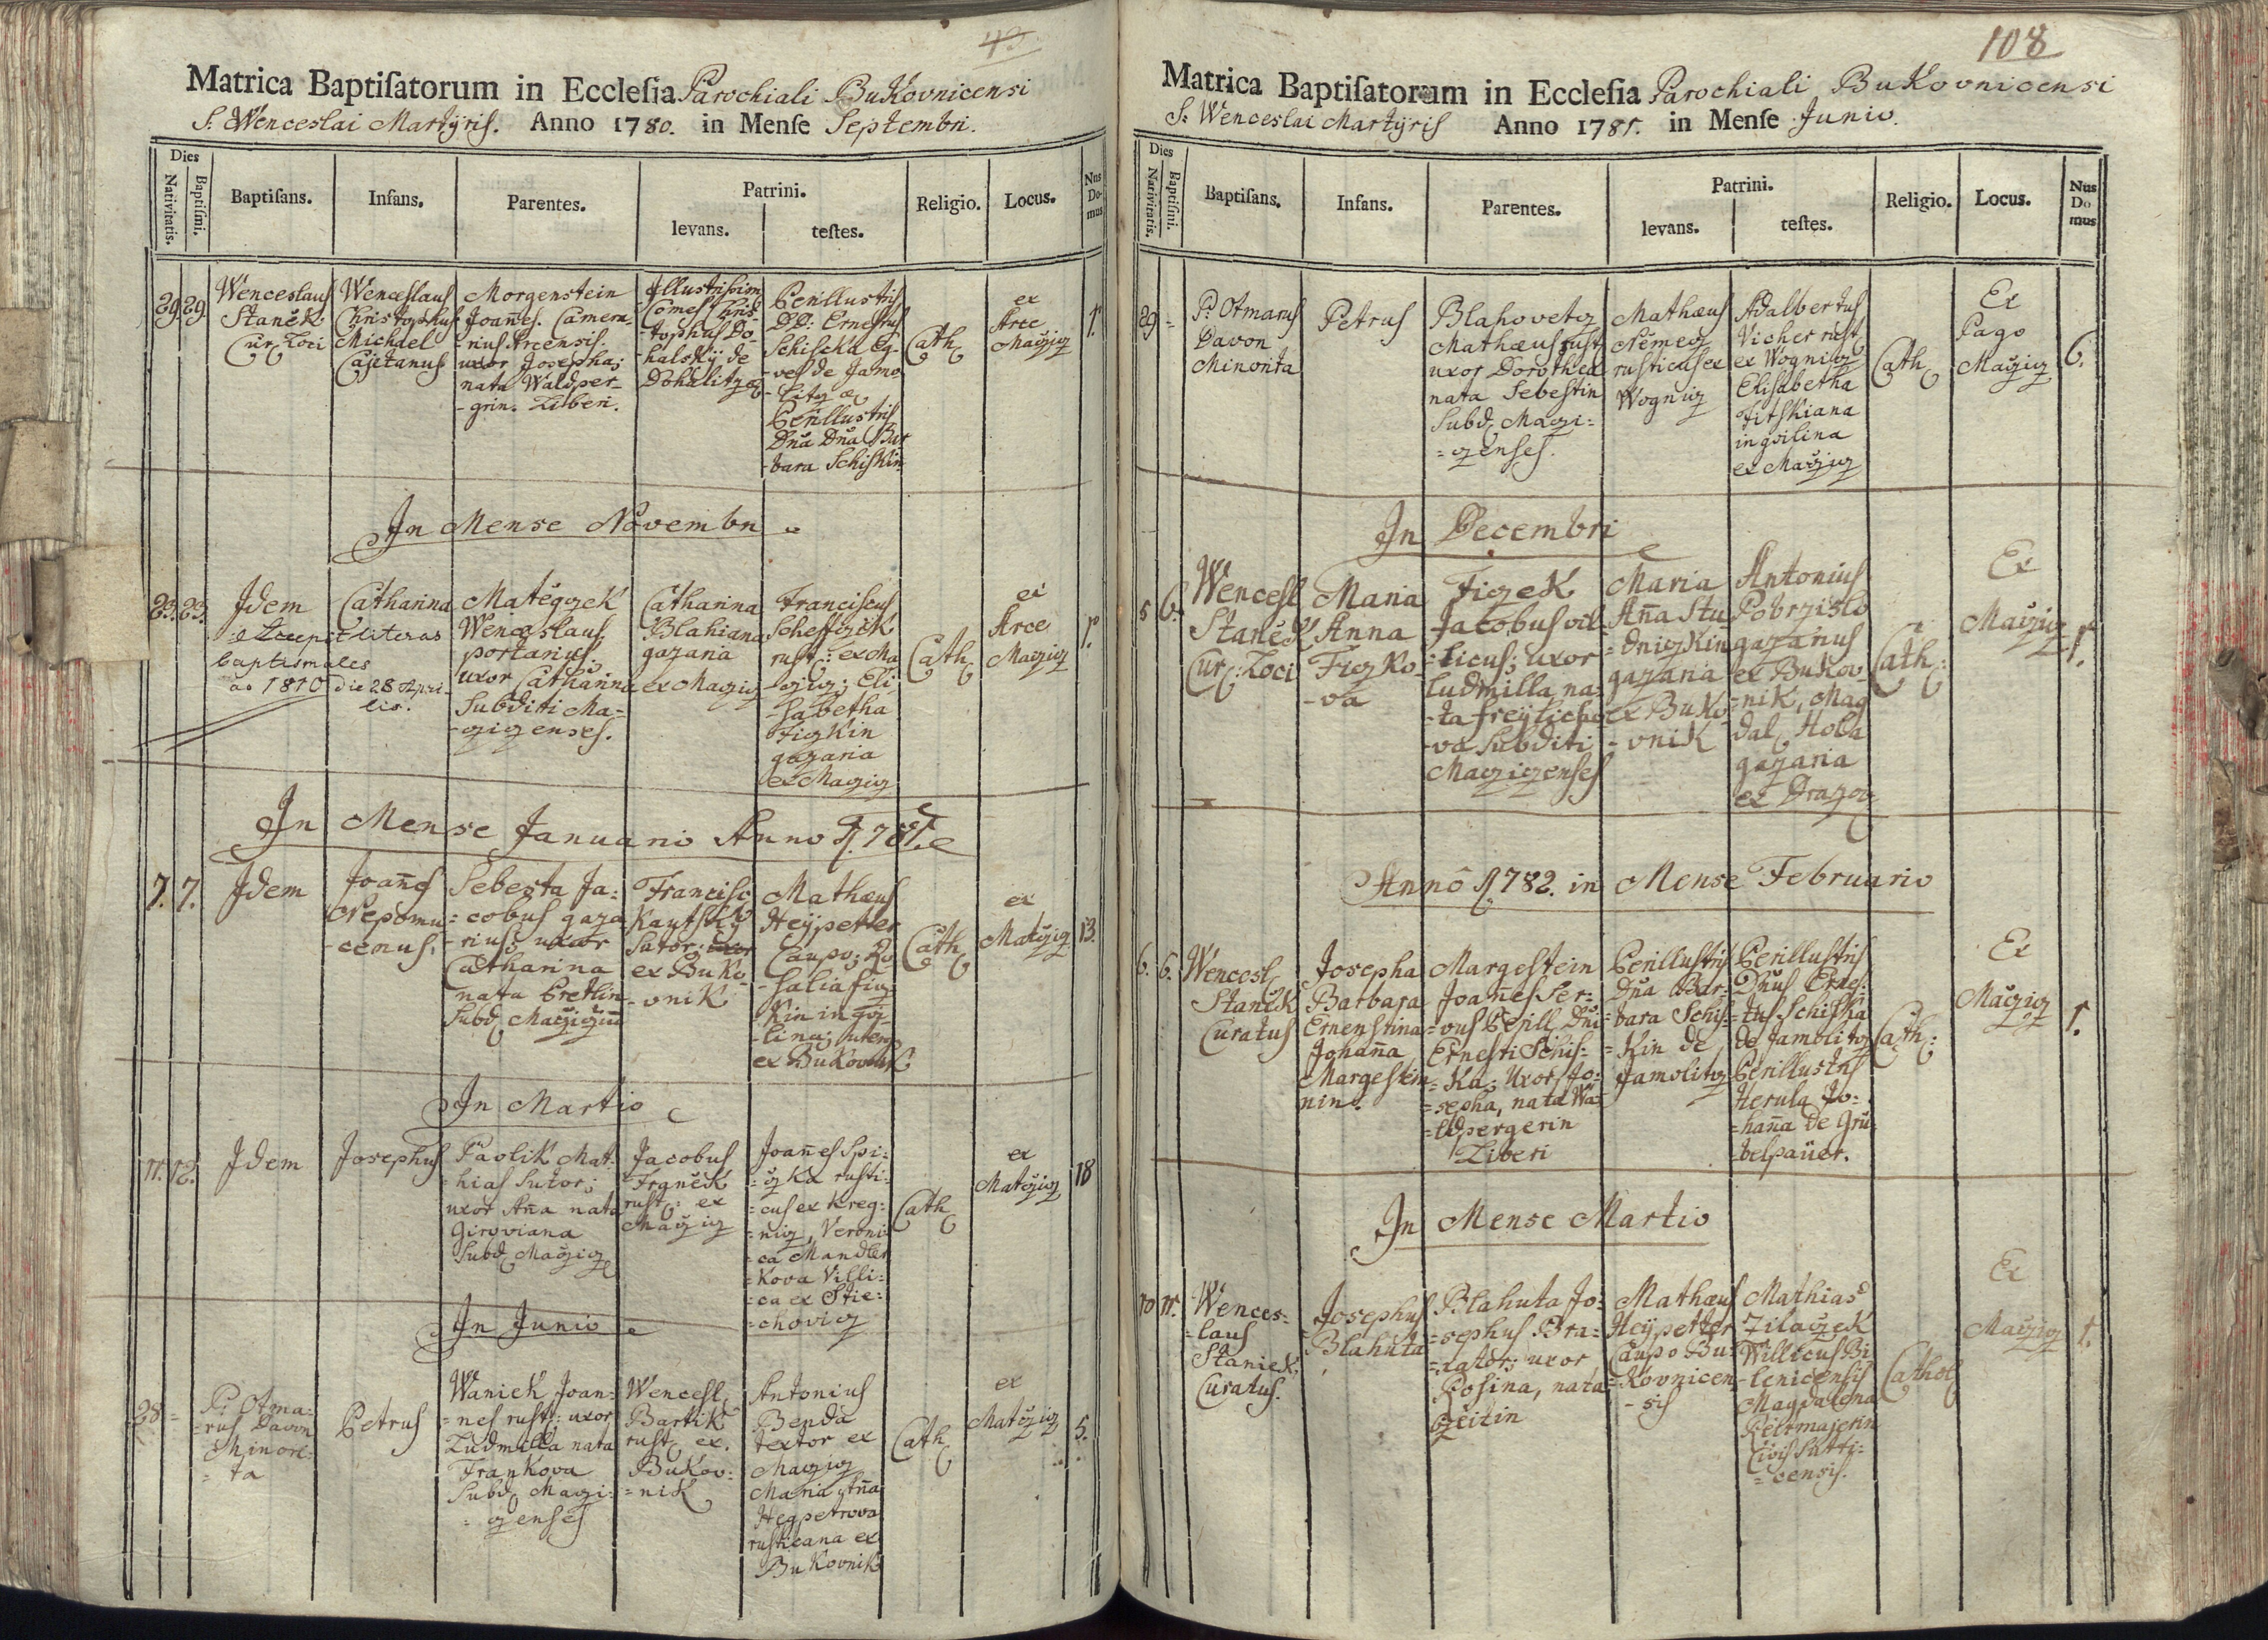 43
Matrica Baptisatorum in Ecclesia Parochiali Bukovnicensi
S. Wenceslai Martÿris. Anno 1780. in Mense Septembri.
Dies
Nativitatis.
Baptismi.
Baptisans.
Infans.
Parentes.
Patrini.
levans.
testes.
Religio.
Locus.
Nus
Do-
mus
29. 29.
Wenceslaus
Staněk
Cur. Loci
Wenceslaus
Christophus
Michael
Cajetanus
Morgenstein
Joañes. Camera-
rius Arcensis.
uxor Josepha;
nata Waldper-
-grin. Liberi.
Illustrissim
Comes Chris-
-tophus Do-
-halskÿ de
Dohalitz
Perillustris
D: D: Ernestus
Schiska Eq-
-ves de Jamo-
-litz &
Perillustris
Dña Dña Bar
-bara Schiskin
Cath
ex
Arce
Maczicz
1.
In Mense Novembri
23. 23.
Idem
Accepit literas
baptismales
ao 1810 die 28 Apri-
lis.
Catharina
Matěgczek
Wenceslaus
portarius
uxor Catharina
Subditi Ma-
-czicz enses.
Catharina
Blahiana
gazaria
ex Maczicz
Franciscus
Scheffczik
rust: ex Ma
-czicz; Eli
-sabetha
Ficzkin
gazaria
ex Maczicz
Cath
ex
Arce
Maczicz
1.
In Mense Januario Anno 1781.
7. 7.
Idem
Joañes
Nepomu-
-cenus.
Sebesta Ja-
=cobus gaza
-rius, uxor
Catharina
nata Bretlin
Subd Macziczin
Francisc
Kautskÿ
Sator;
ex Buko-
-vnik
Mathæus
Heÿpetter
Caupo; Ro
-salia ficz
kin in qvi
-lina;
ex Bukovnik
Cath
ex
Maczicz
13.
In Martio
11. 12.
Idem
Josephus
Pavlik Mat-
=hias Sutor;
uxor Aña nata
Giroviana
Subd Maczicz
Jacobus
Franěk
rust: ex
Maczicz
Joañes Spi-
=czka rusti-
=cus ex Kreg-
=nicz, Veroni
=ca Mandle
=Kova Villi-
=ca ex Stie-
=chovicz
Cath
ex
Maczicz
18
In Junio
28 =
P: Otma-
=rus Davon
Minori-
=ta
Petrus
Waniek Joan-
=nes rust: uxor
Ludmilla nata
Frankova
Subd Maczi-
=cz enses
Wencesl
Bartik
rust ex.
Bukov-
=nik
Antonius
Benda
textor ex
Maczicz
Maria Aña
Hegpetrova
rusticana ex
Bukovnik
Cath
ex
Maczicz
5.
108
Matrica Baptisatorum in Ecclesia Parochiali Bukovnicensi
S. Wenceslai Martÿris Anno 1781. in Mense Junio.
Dies
Nativitatis.
Baptismi.
Baptisans.
Infans.
Parentes.
Patrini.
levans.
testes.
Religio.
Locus.
Nus
Do
mus
29 =
P: Otmarus
Davon
Minorita
Petrus
Blahovetz
Mathæus rust
uxor Dorothea
nata Sebestin
Subd Maczi-
=cz enses.
Mathæus
Němecz
rusticus ex
Wognicz
Adalbertus
Vicher rust
ex Wognicz
Elisabetha
Fitskiana
inqvilina
ex Maczicz
Cath
Ex
Pago
Maczicz
6.
In Decembri
5 6.
Wencesl
Staněk
Cur: Loci
Maria
Anna
Ficzko-
-va
Ficzek
Jacobus vil
=licus; uxor
Ludmilla na-
-ta freÿlicho
-va Subditi
Macziczenses
Maria
Aña Stu
=dniczkin
gazaria
ex Buko
-vnik
Antonius
Pobrzislo
gazarius
ex Bukov
=nik, Mag
dal Hola
gazaria
ex Drazow
Cath:
Ex
Maczicz
1.
Annô 1782. in Mense Februario
6. 6.
Wencesl
Staněk
Curatus
Josepha
Barbara
Ernenstina
Johaña
Margestein
nin.
Margestein
Joañes Ser-
=vus Perill Dñi
Ernesti Schis-
=ka; Uxor Jo-
=sepha, nata Wa-
=ldpergerin
Liberi
Perillustris
Dña Bar-
=bara Schis-
=kin de
Jamolitz
Perillustris
Dñus Ernes-
=tus Schiska
de Jamolitz
Perillustris
Herula Jo-
=haña de Grü-
=belpaüer.
Cath:
Ex
Maczicz
1.
In Mense Martio
10 11.
Wences-
=laus
Staniek
Curatus.
Josephus
Blahuta
Blahuta Jo-
=sephus Bra-
=xator; uxor
Rosina, nata
Mathæus
Heÿpetter
Caupo Bu-
=kovnicen
-sis
Mathias
Zilaczek
Willicus Bi
-lenicensis
Magdalena
Reitmajerin
Civis Sutti-
=censis.
Cathol
Ex
Maczicz
1.